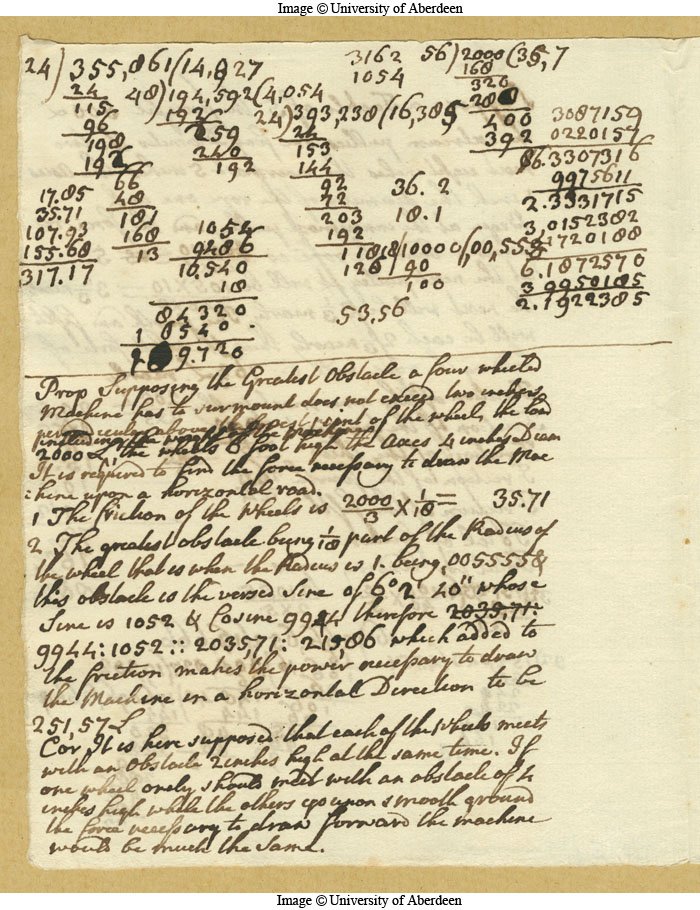 Image © University of Aberdeen
24) 355,861 (14,827
24
115
96
198
192
66
48
181
168
13
48) 194,592 (4,054
192
259
240
192
3162
1054
24) 393,238 (16,385
24
153
144
92
72
203
192
118
120
56) 2000 (35,7
168
320
280
400
392
8
3087159
0220157
16.3307316
9975611
2.3331715
3,0152382
1720188
6.1872570
3 9950185
2.1922385
17.85
35.71
107.93
155.68
317.17
1054
9486
10,540
18
84320
1 0540
9.720
36.2
18.1
18) 10000 (,00,555
90
100
53.56
Prop Supposing the Greatest Obstacle a four wheeled
Machine has to surmount does not exceed two inches
perpendicular above the lowest point of the wheel, the load
including the weight of the machine
2000 £, the wheels 6 foot high the Axes 4 inches Diam
It is required to find the force necessary to draw the Mac
:hine upon a horizontal road.
1 The friction of the Wheels is 2000/3 × 1/18 = 35.71
2 The greatest obstacle being 1/18 part of the Radius of
the wheel that is when the Radius is 1. being ,005555 &
this obstacle is the versed Sine of 6° 2' 40" whose
Sine is 1052 & Cosine 9944 therefore 2035,71:
9944:1052 :: 2035,71: 215,86 which added to
the friction makes the power necessary to draw
the Machine in a horizontal Direction to be
251,57 £
Cor It is here supposed that each of the Wheels meets
with an Obstacle 2 inches high at the same time. If
one wheel onely should meet with an obstacle of 4
inches high while the others go upon smooth ground
the force necessary to draw forward the machine
would be much the same.
Image © University of Aberdeen